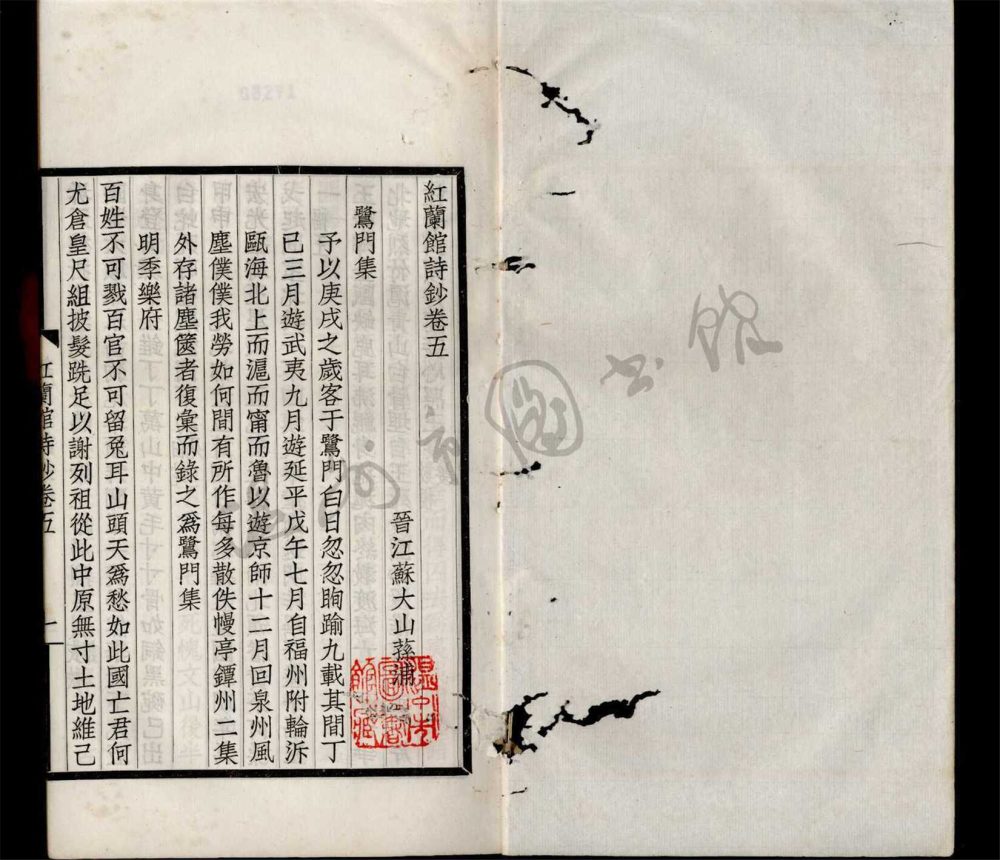 紅蘭館詩鈔卷五
晉江蘇大山蓀浦
鷺門集
予以庚戌之歲客于鷺門白日忽忽眴踰九載其間丁
已三月遊武夷九月遊延平戊午七月自福州附輪泝
甌海北上而滬而甯而魯以遊京師十二月回泉州風
塵僕僕我勞如何間有所作每多散佚幔亭鐔州二集
外存諸塵篋者復彙而錄之爲鷺門集
明季樂府
百姓不可戮百官不可留兔耳山頭天爲愁如此國亡君何
尤倉皇尺組披髮跣足以謝列祖從此中原無寸土地維己
紅蘭館詩鈔卷五
一